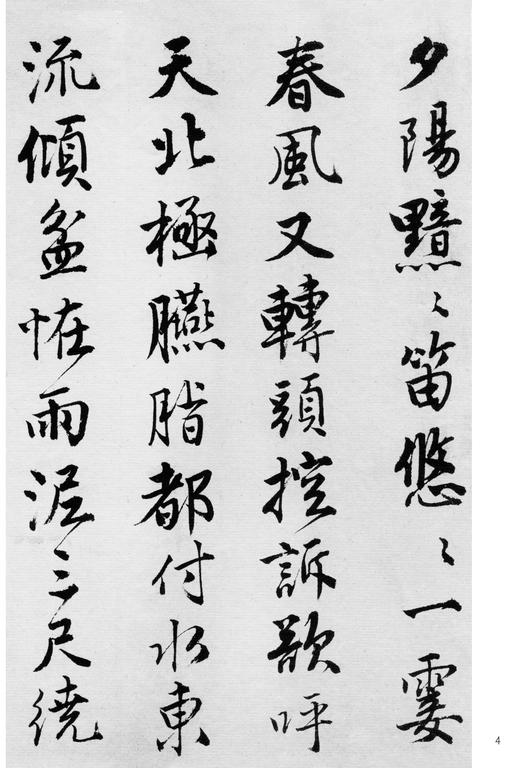 夕陽黯〻笛悠〻一霎
春風又轉頭控訴欲呼
天北極臙脂都付水東
流傾盆恠雨泥三尺繞
4